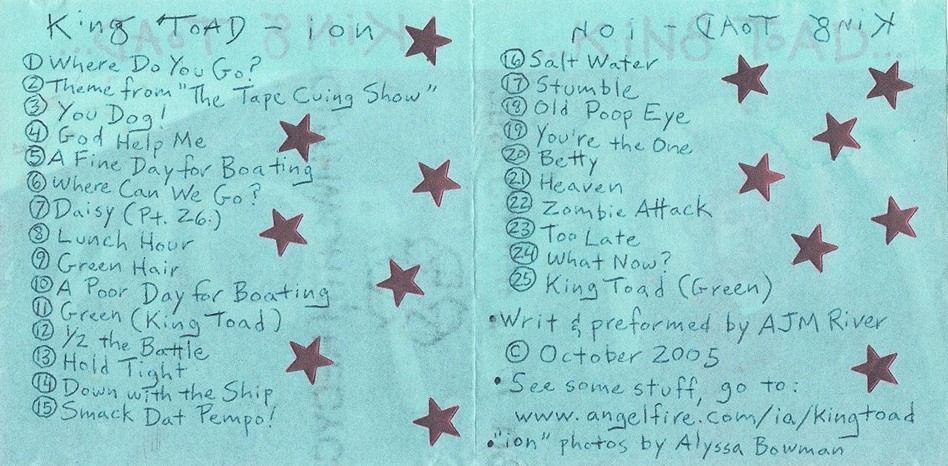 King TOAD - ion
① Where Do You Go?
② Theme from "The Tape Cuing Show"
③ You Dog!
④ God Help Me
⑤ A Fine Day for Boating
⑥ Where Can We Go?
⑦ Daisy (Pt. 26:)
⑧ Lunch Hour
⑨ Green Hair
⑩ A Poor Day for Boating
⑪ Green (King Toad)
⑫ 1/2 the Battle
⑬ Hold Tight
⑭ Down with the Ship
⑮ Smack Dat Pempo!
KING TOAD - ION
⑯ Salt Water
⑰ Stumble
⑱ Old Poop Eye
⑲ You're the One
⑳ Betty
㉑ Heaven
㉒ Zombie Attack
㉓ Too Late
㉔ What Now?
㉕ King Toad (Green)
• Writ & preformed by AJM River
© October 2005
• See some stuff, go to:
www.angelfire.com/ia/kingtoad
• "ion" photos by Alyssa Bowman